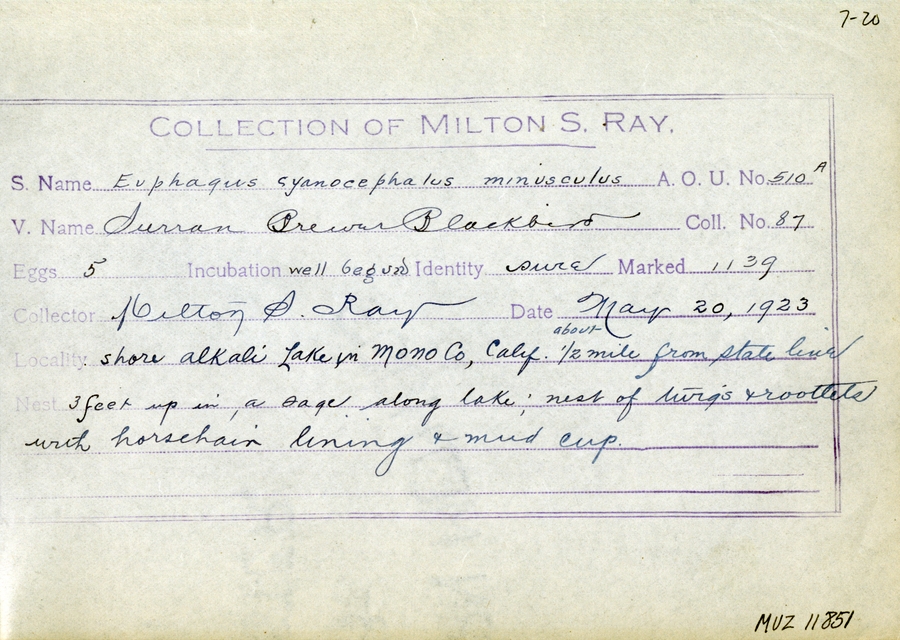 7-20
COLLECTION OF MILTON S. RAY.
S. Name Euphagus cyanocephalus minusculus A. O. U. No. 510 A
V. Name Brewer Blackbird Coll. No. 87
Eggs 5 Incubation well begun Identity sure Marked 1139
Collector Milton S. Ray Date May 20, 1923
about
Locality shore alkali Lake in Mono Co, Calif. 1/2 mile from state line
Nest 3 feet up in a sage along lake; nest of twigs & rootlets
with horsehair lining & mud cup.
MUZ 11851